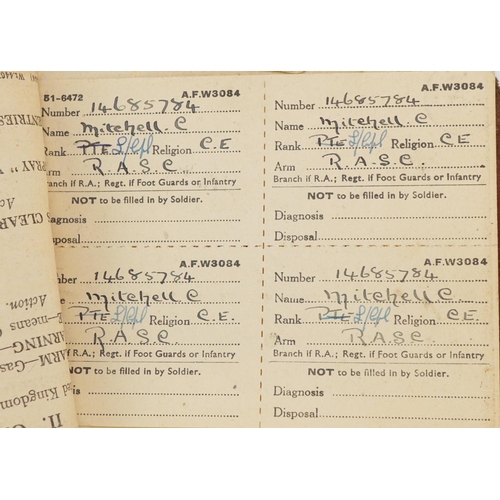 51-6472 A.F.W3084
Number 14685784
Name Mitchell. C
Rank Pte L/Cpl Religion C.E
Arm R.A.S.C.
Branch if R.A.; Regt. if Foot Guards or Infantry
NOT to be filled in by Soldier.
Diagnosis
Disposal
A.F.W3084
Number 14685784
Name Mitchell. C
Rank Pte L/Cpl Religion C.E
Arm R.A.S.C.
Branch if R.A.; Regt. if Foot Guards or Infantry
NOT to be filled in by Soldier.
Diagnosis
Disposal
A.F.W3084
Number 14685784
Name Mitchell C
Rank Pte L/Cpl Religion C.E.
Arm R.A.S.C
Branch if R.A.; Regt. if Foot Guards or Infantry
NOT to be filled in by Soldier.
Diagnosis
Disposal
A.F.W3084
Number 14685784
Name Mitchell C.
Rank Pte L/Cpl Religion C.E.
Arm R.A.S.C
Branch if R.A.; Regt. if Foot Guards or Infantry
NOT to be filled in by Soldier.
Diagnosis
Disposal
ENTRIES
CLEAR
Action.
—means
ARM—Gas
Kingdom
II.